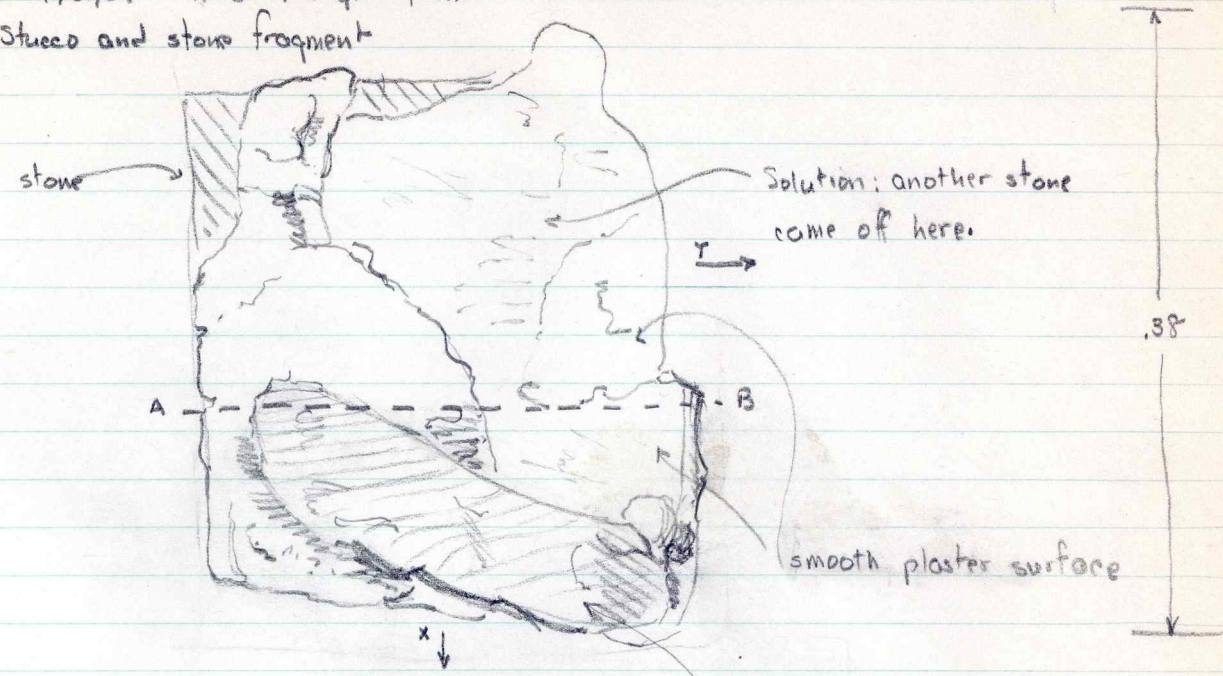 Stucco and stone fragment
stone
Solution: another stone
came off here.
Y
.38
A
B
smooth plaster surface
X